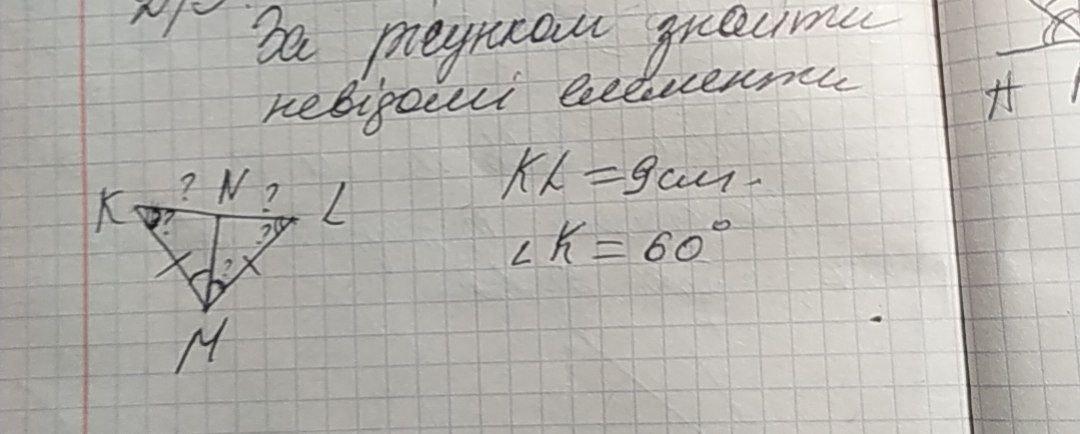 За рисунком знайти
невідомі елементи
K ? N ? L
KL = 9 см.
? ?
?
∠K = 60°
M
A